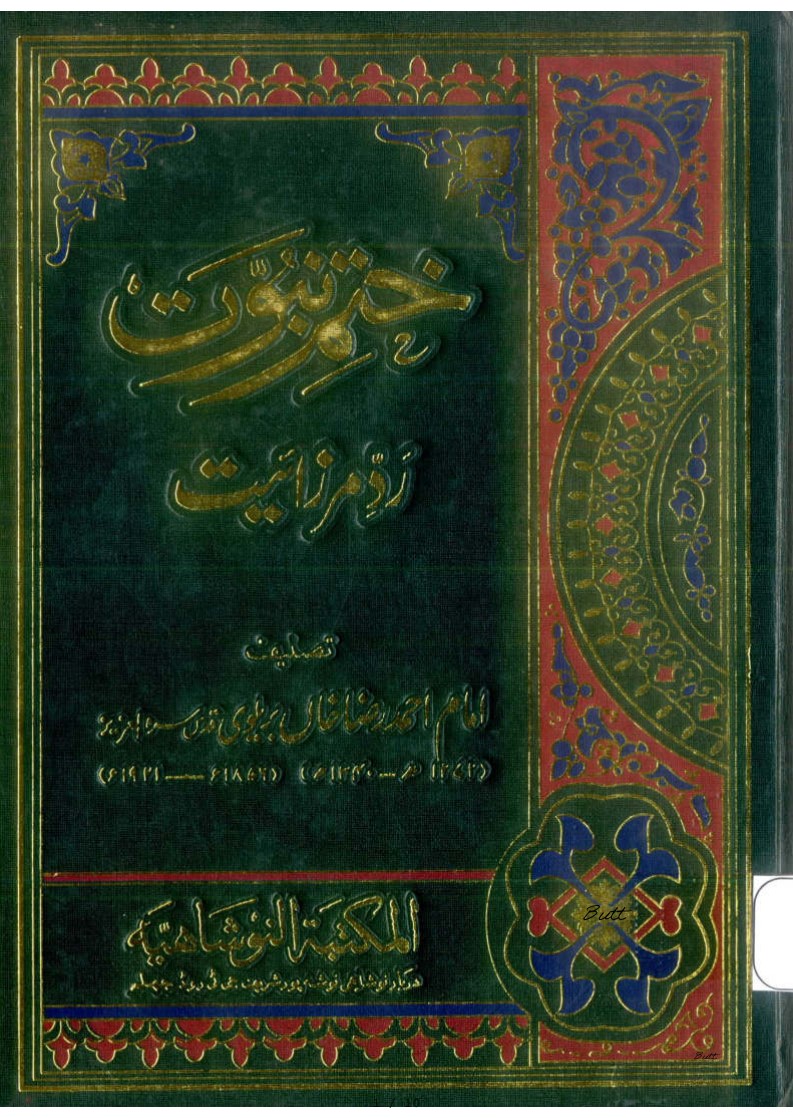 ختم نبوّت
ردِّ مرزائیت
تصنیف
امام احمد رضا خاں بریلوی قدس سرہ العزیز
(۱۲۷۲ھ — ۱۳۴۰ھ) (۱۸۵۶ء — ۱۹۲۱ء)
المكتبة النوشاهية
دربار نوشاہی نوشہ پور شریف جی ٹی روڈ جہلم
Butt
Butt